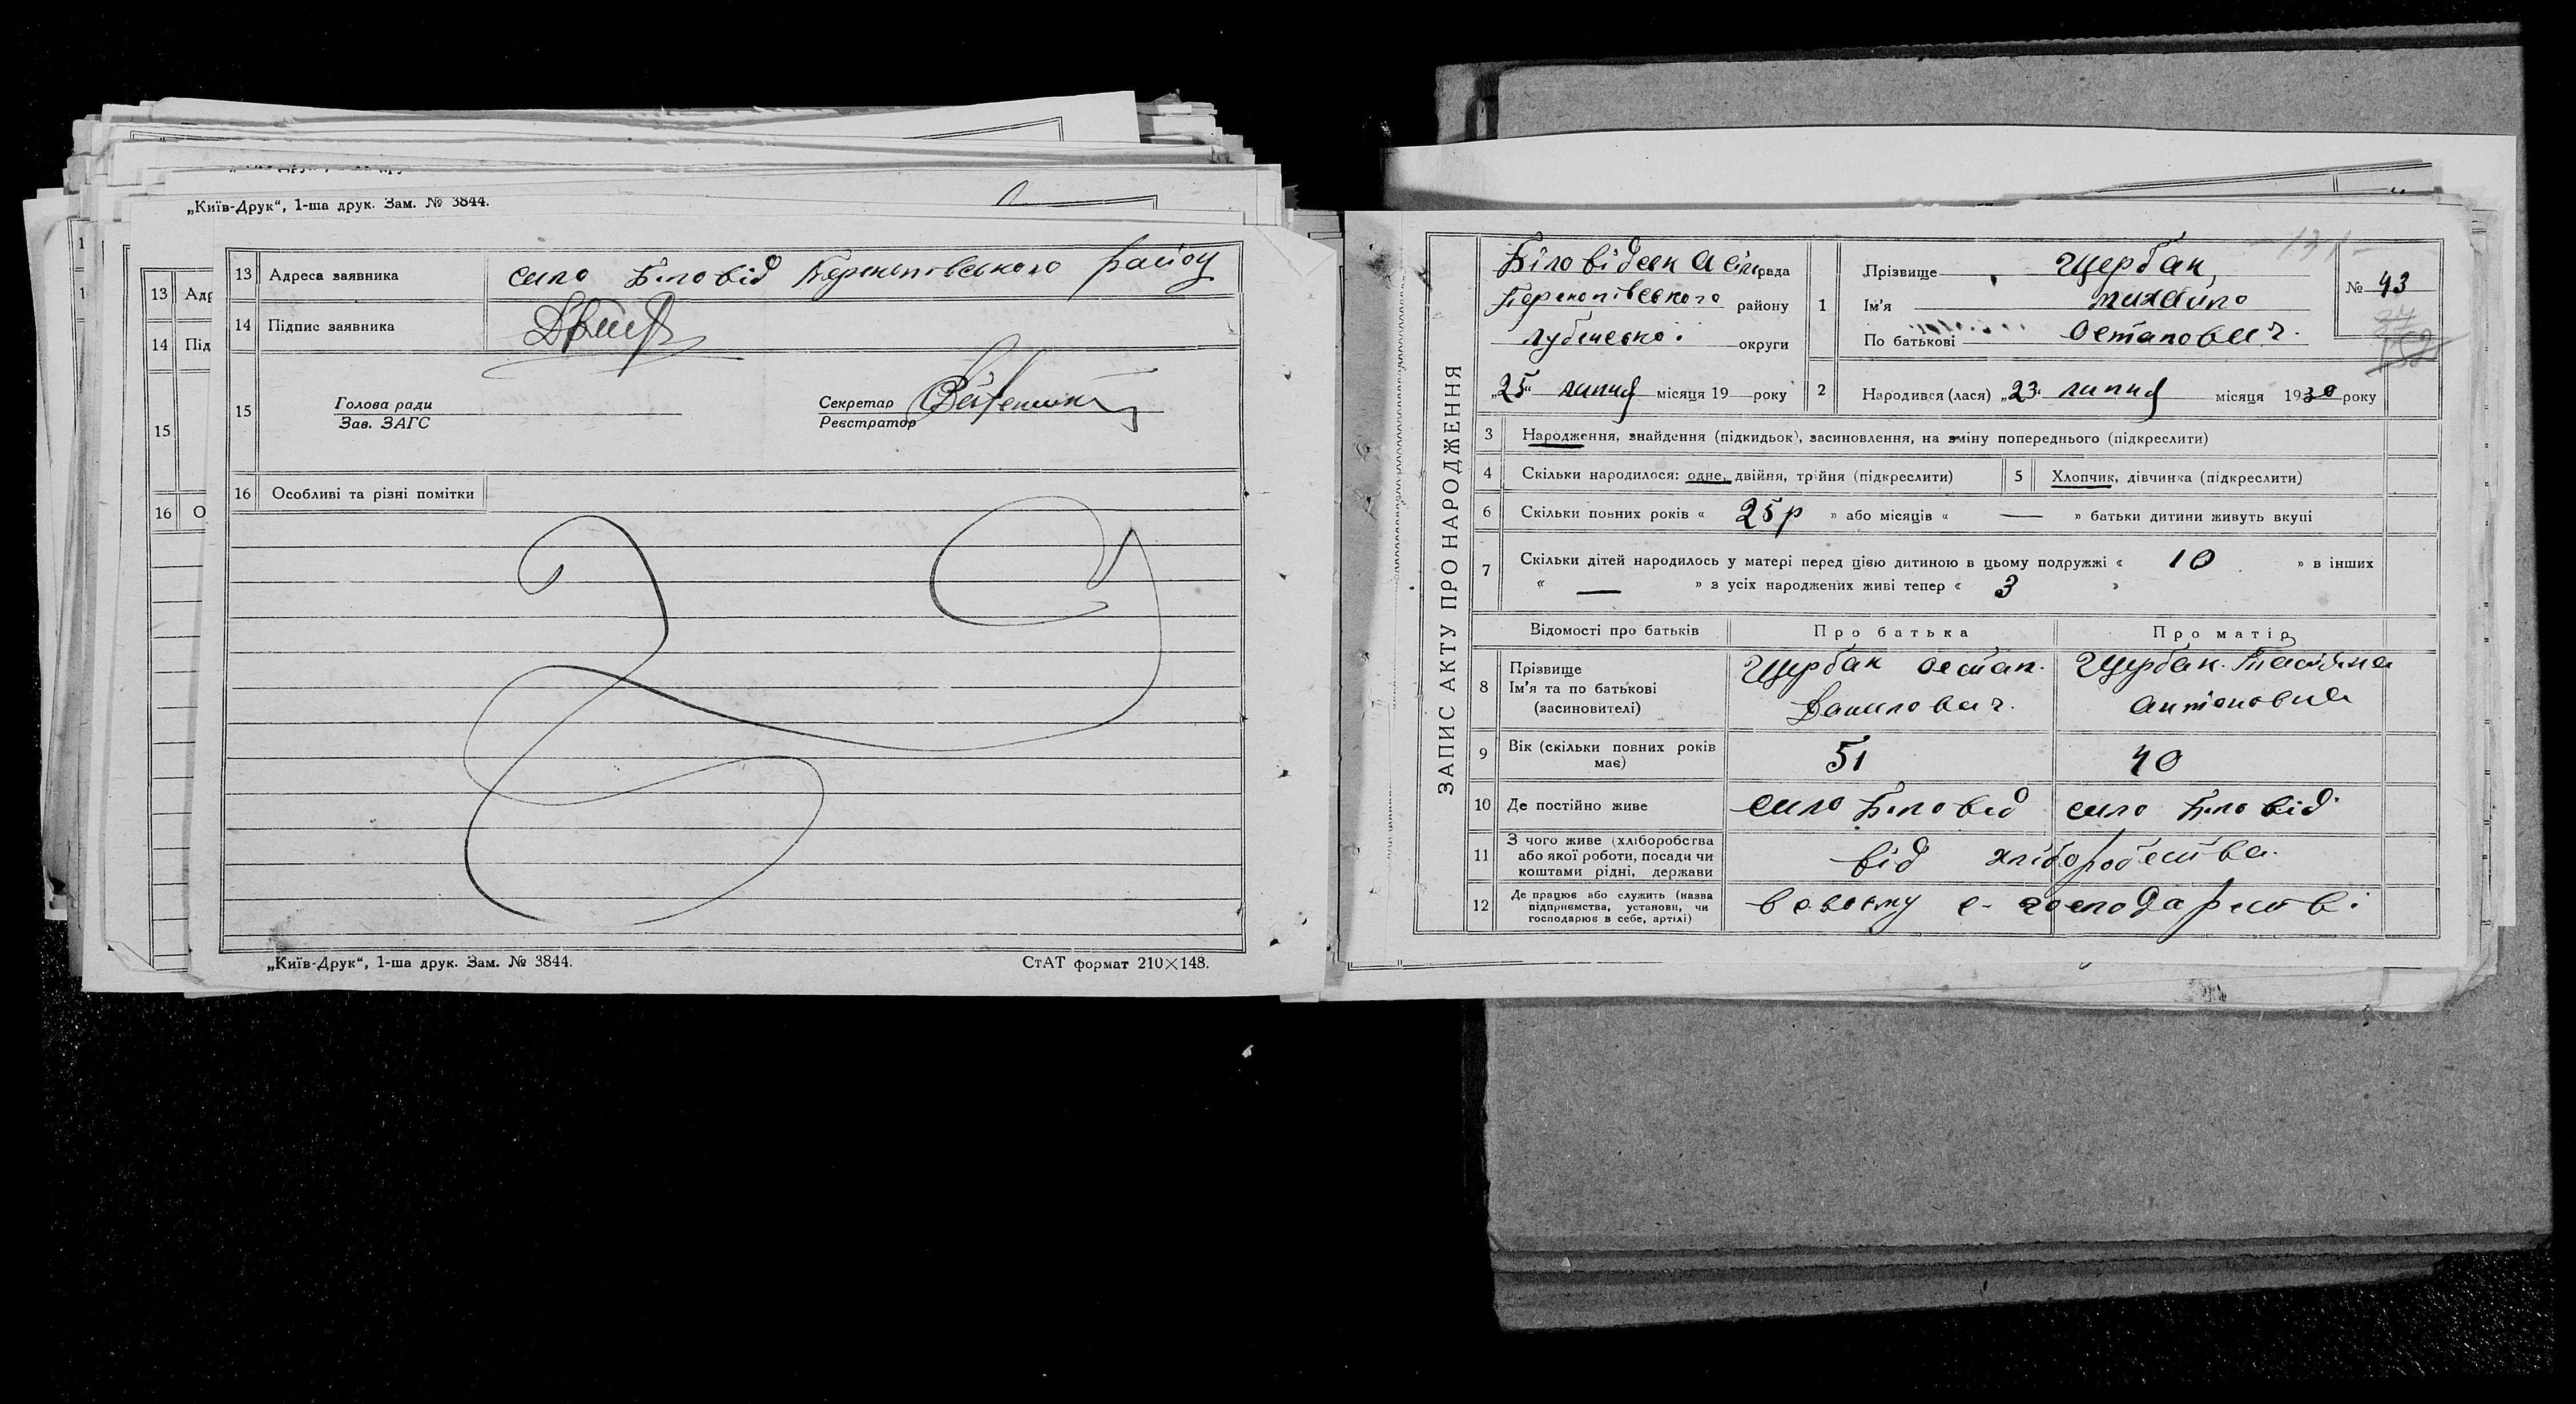 „Київ-Друк“, 1-ша друк. Зам. № 3844.
13 Адр
14 Під
15
16 О
13 Адреса заявника село Біловід Перекопівського району
14 Підпис заявника
15 Голова ради
Зав. ЗАГС
Секретар
Реєстратор
16 Особливі та різні помітки
„Київ-Друк“, 1-ша друк. Зам. № 3844.
СтАТ формат 210×148.
ЗАПИС АКТУ ПРО НАРОДЖЕННЯ
Біловідська сільрада
Перекопівського району
Лубенської округи
„25“ липня місяця 19 року
1 Прізвище Щербак
Ім'я Михайло
По батькові Остапович.
131
№ 43
2 Народився (лася) „23“ липня місяця 1930 року
3 Народження, знайдення (підкидьок), засиновлення, на зміну попереднього (підкреслити)
4 Скільки народилося: одне, двійня, трійня (підкреслити)
5 Хлопчик, дівчинка (підкреслити)
6 Скільки повних років « 25 р » або місяців « — » батьки дитини живуть вкупі
7 Скільки дітей народилось у матері перед цією дитиною в цьому подружжі « 10 » в інших
« — » з усіх народжених живі тепер « 3 »
Відомості про батьків Про батька Про матір
8 Прізвище
Ім'я та по батькові
(засиновителі)
Щербак Остап.
Данилович.
Щербак Тастяна
Антоновна
9 Вік (скільки повних років
має)
51 40
10 Де постійно живе село Біловід село Біловід
11 З чого живе (хліборобства
або якої роботи, посади чи
коштами рідні, держави
від хліборобства.
12 Де працює або служить (назва
підприємства, установи, чи
господарює в себе, артілі)
в своєму с-господарстві